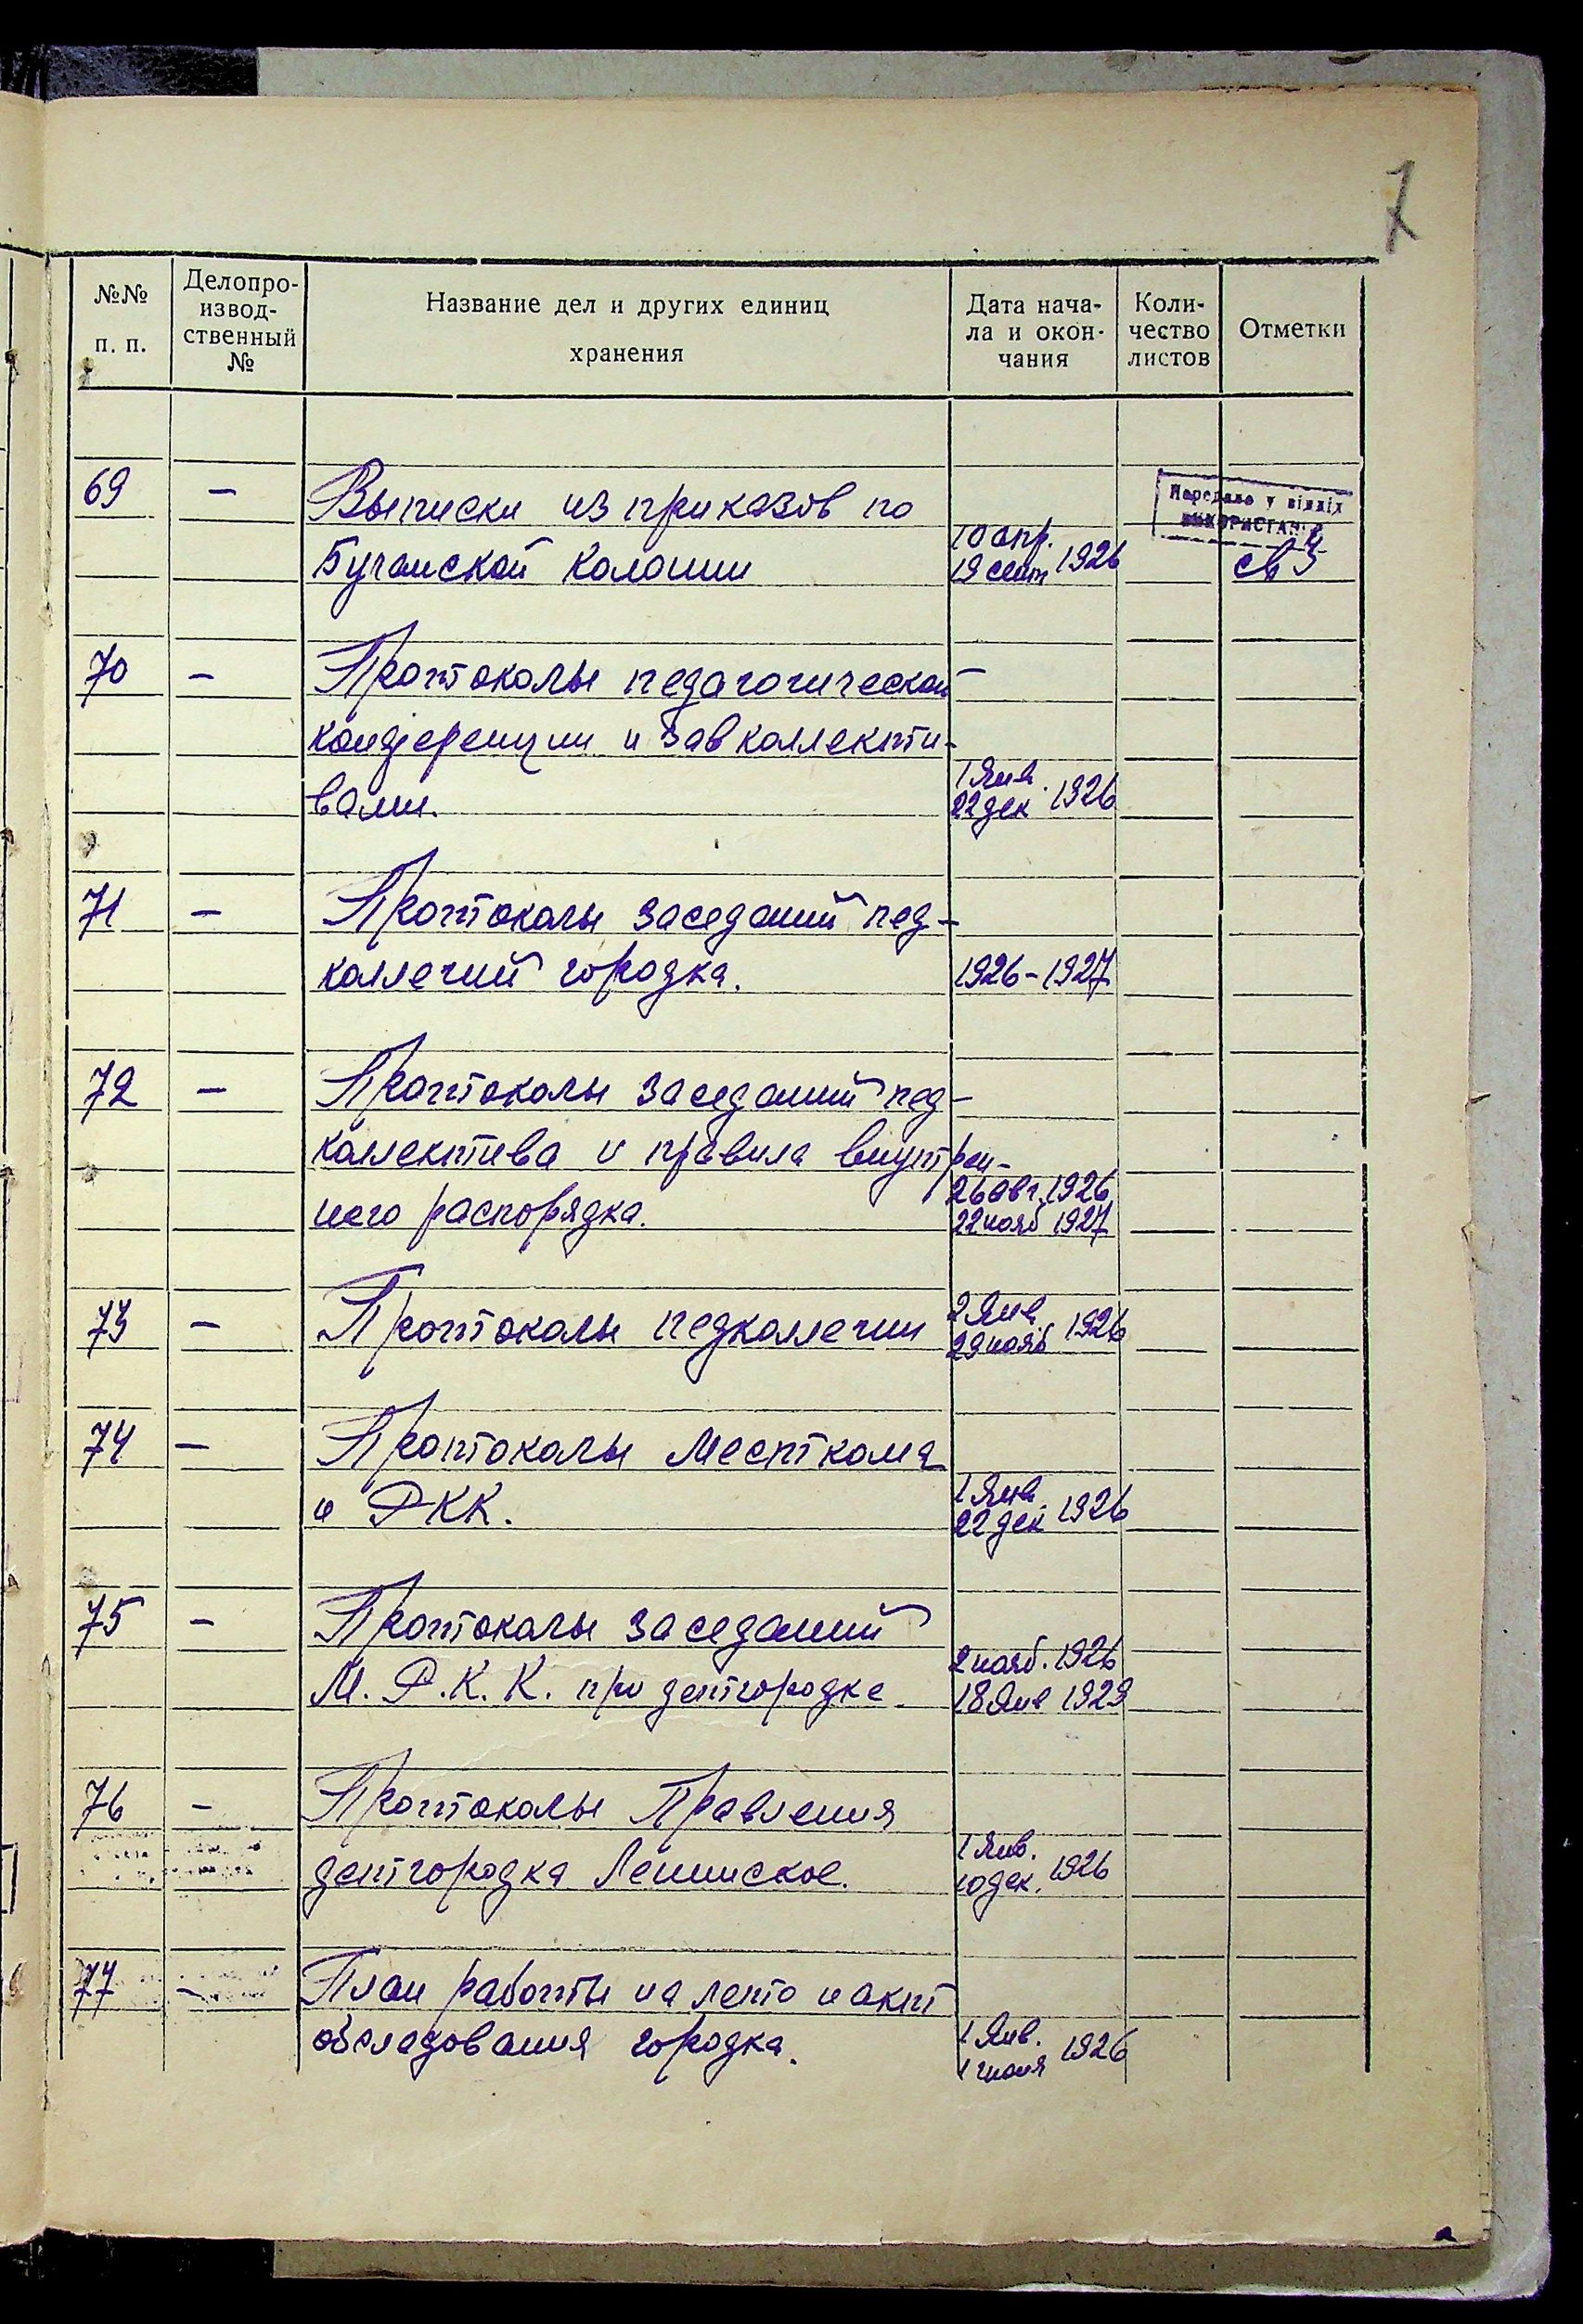 7
№№ п. п.
Делопро-
извод-
ственный
№
Название дел и других единиц
хранения
Дата нача-
ла и окон-
чания
Коли-
чество
листов
Отметки
69 — Выписки из приказов по
Бучанской колонии 10 апр. 19 сент 1926 св
Передано у відділ
використан
70 — Протоколы педагогической
конференции и завколлекти-
вами. 1 Янв. 22 дек. 1926
71 — Протоколы заседаний пед-
коллегий городка. 1926-1927
72 — Протоколы заседаний пед-
коллектива и правила внутрен-
него распорядка. 26 авг. 1926
22 нояб 1927
73 — Протоколы педколлегии 2 Янв. 29 нояб 1926
74 — Протоколы Месткома
и РКК. 1 Янв. 22 дек 1926
75 — Протоколы заседаний
М. Р. К. К. при детгородке. 2 нояб. 1926
18 Янв 1929
76 — Протоколы Правления
детгородка Ленинское. 1 Янв. 10 дек. 1926
77 — План работы на лето и акт
обследования городка. 1 Янв. 1 июля 1926